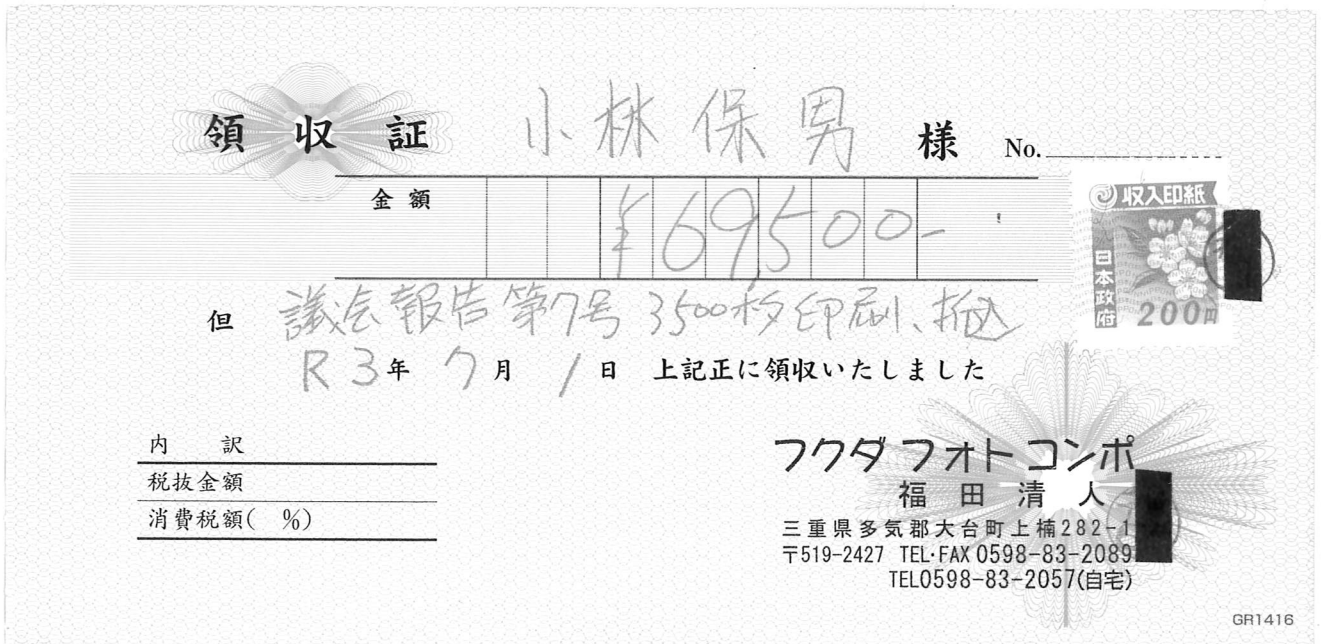 領収証 小林保男 様 No.
金額 ¥69,500-
収入印紙
日本政府
200円
但 議会報告第7号 3500枚印刷、折込
R3年 7月 1日 上記正に領収いたしました
内訳
税抜金額
消費税額( %)
フクダフォトコンポ
福田清人
三重県多気郡大台町上楠282-1
〒519-2427 TEL・FAX 0598-83-2089
TEL0598-83-2057(自宅)
GR1416